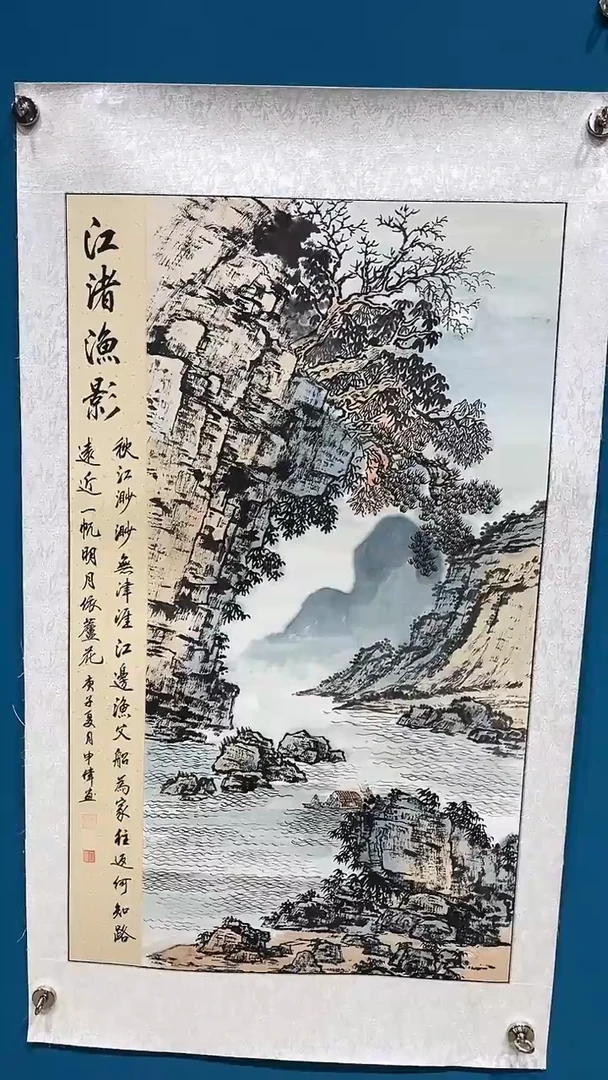 江渚漁影
秋江渺渺無津涯江邊漁父船為家往返何知路
遠近一帆明月依蘆花庚子夏月申偉畫